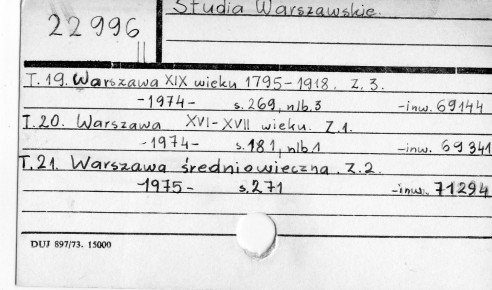 Studia Warszawskie.
22996
II
T. 19. Warszawa XIX wieku 1795-1918. Z. 3.
-1974- s. 269, nlb. 3 -inw. 69144
T. 20. Warszawa XVI-XVII wieku. Z. 1.
-1974- s. 181, nlb 1 -inw. 69341
T. 21. Warszawa średniowieczna. Z. 2.
-1975- s. 271 -inw. 71294
DUJ 897/73. 15000